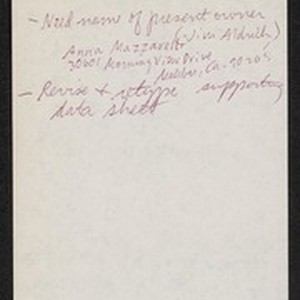 - Need name of present owner
(Vivi Aldrich)
Anna Mazzarella
30601 Morning View Drive
Malibu, Ca. 90265
- Revise & retype supporting
data sheet